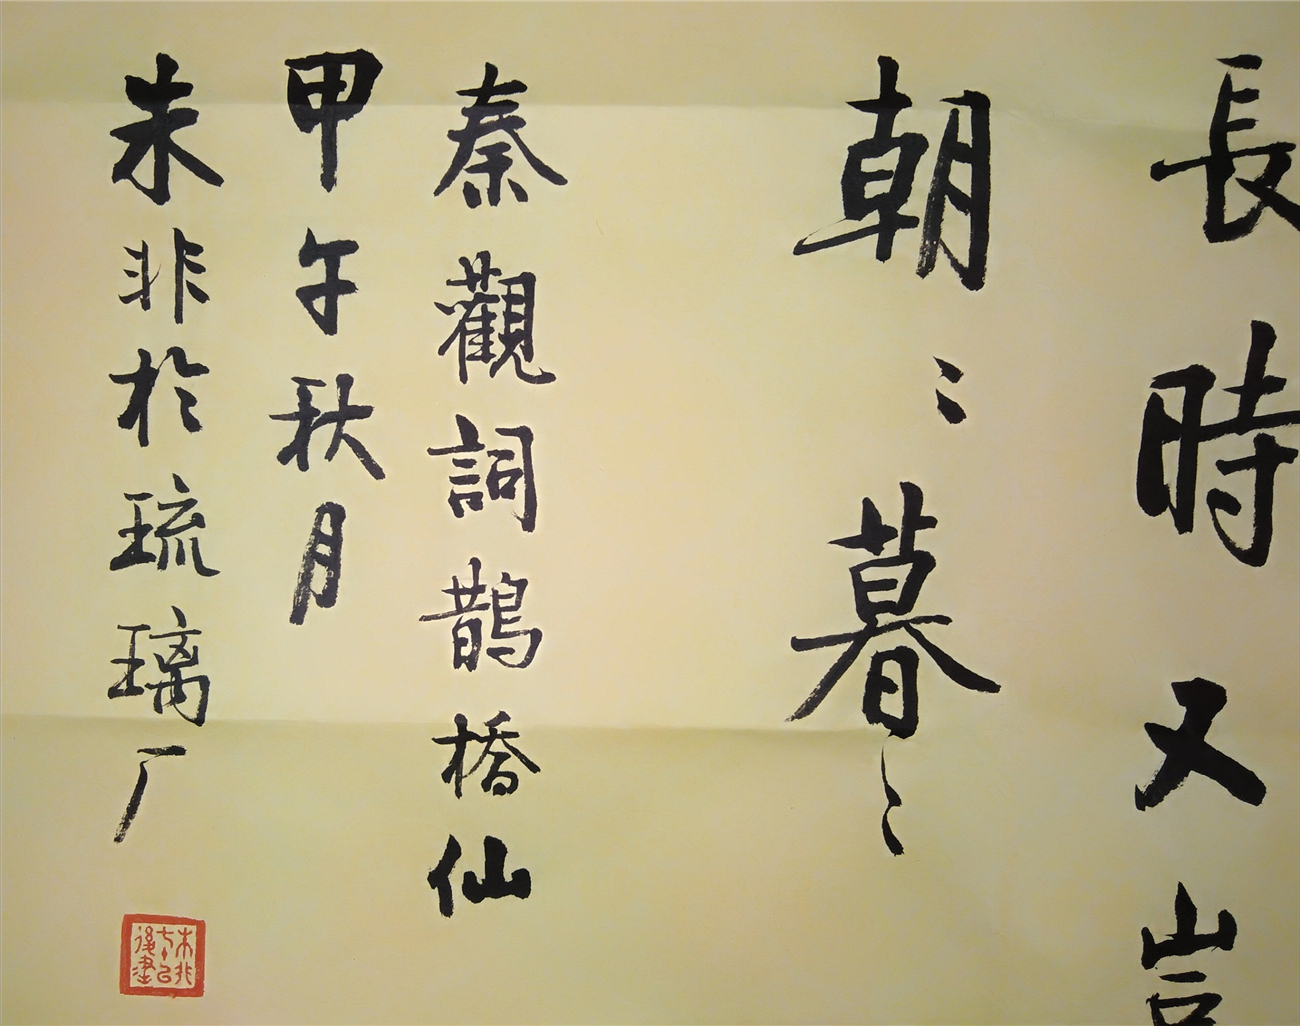 長時又豈
朝〻暮〻
秦觀詞鵲橋仙
甲午秋月
朱非於琉璃厂